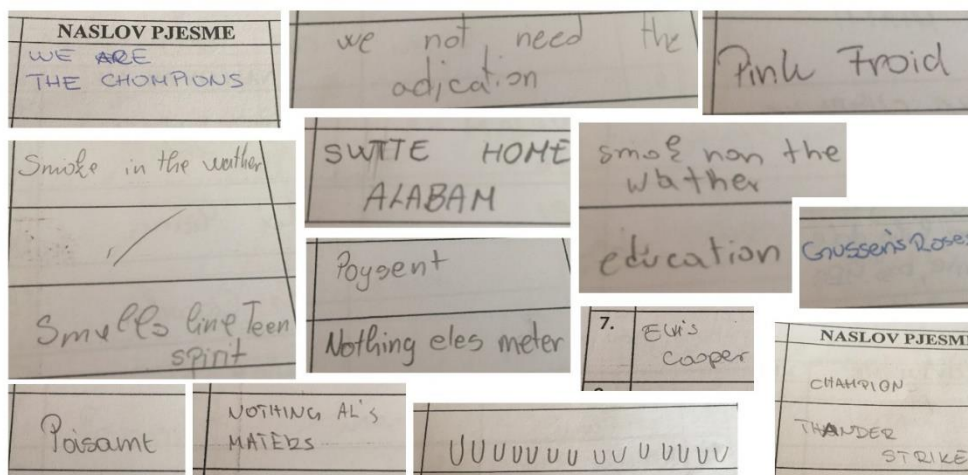 NASLOV PJESME
WE ARE
THE CHOMPIONS
we not need the
adication
Pink Froid
Smoke in the wather
Smells line Teen
spirit
SWTTE HOME
ALABAM
smok non the
wather
education
Gnussen's Roses
Poysent
Nothing eles meter
7.
Elvis
Cooper
NASLOV PJESME
CHAMPION
THANDER
STRIKE
Poisamt
NOTHING AL's
MATERS
UUUUUUU UU UUUUU